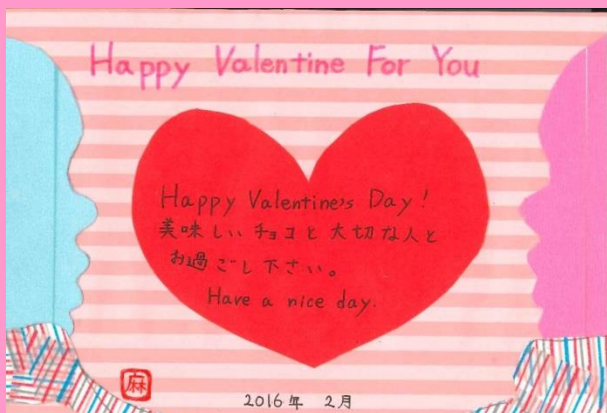 Happy Valentine For You
Happy Valentine's Day!
美味しいチョコと大切な人と
お過ごし下さい。
Have a nice day.
麻
2016年 2月